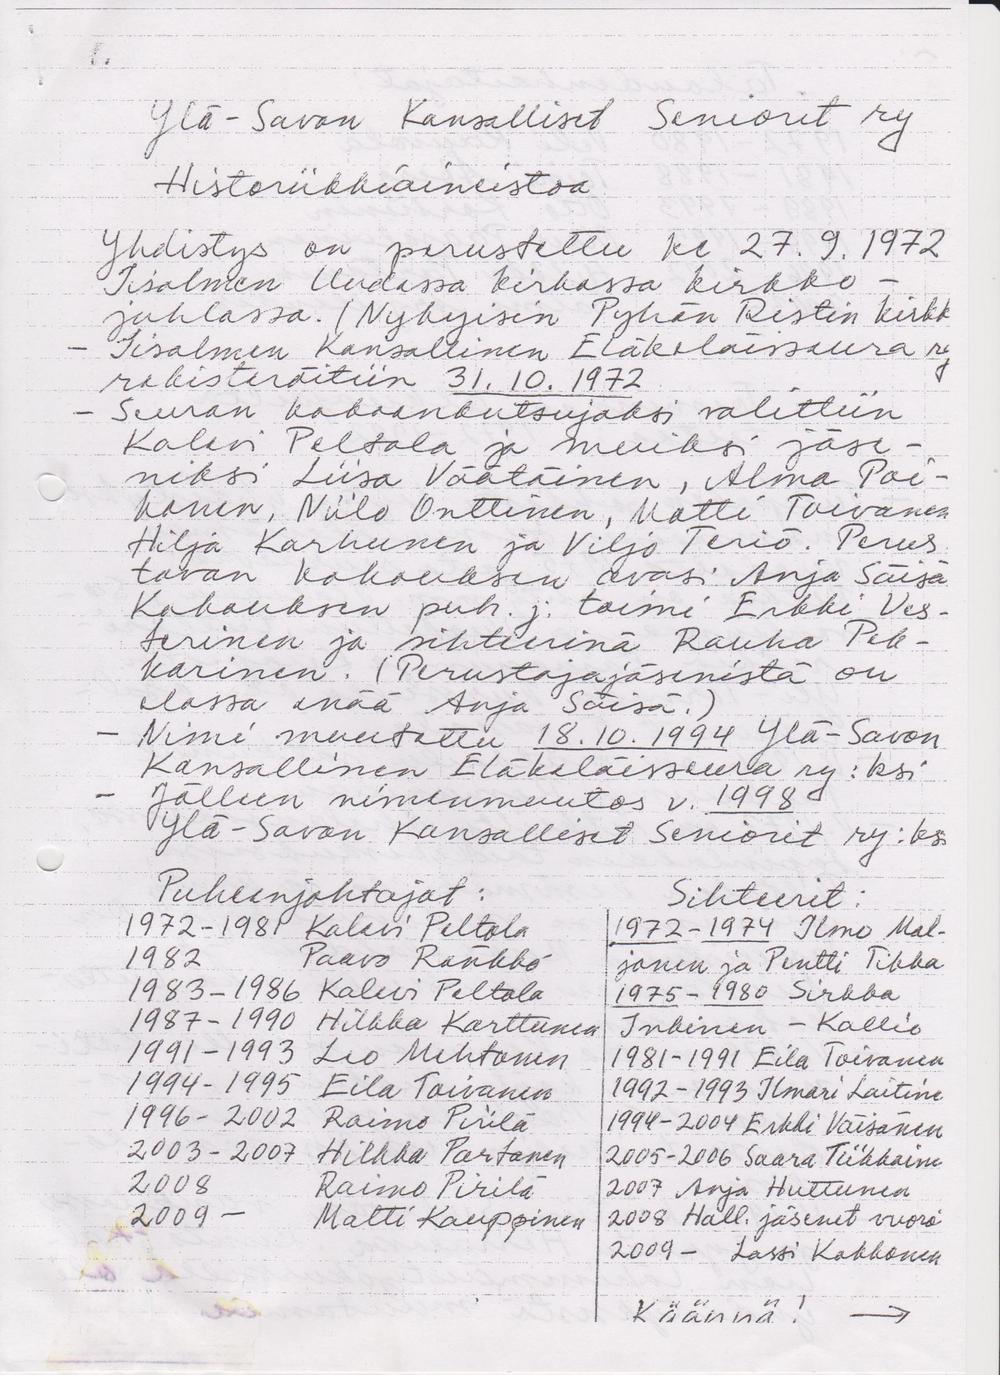 1.
Ylä-Savon Kansalliset Seniorit ry
Historiikkiaineistoa
Yhdistys on perustettu ke 27.9.1972
Iisalmen Uudessa kirkossa kirkko-
juhlassa. (Nykyisin Pyhän Ristin kirkk
- Iisalmen Kansallinen Eläkeläisseura ry
rekisteröitiin 31.10.1972
- Seuran kokoonkutsujaksi valittiin
Kalevi Peltola ja muiksi jäse-
niksi Liisa Väätäinen, Alma Poi-
konen, Niilo Onttinen, Matti Toivanen
Hilja Karhunen ja Viljo Teriö. Perus
tavan kokouksen avasi Anja Säisä
Kokouksen puh.j. toimi Erkki Ves-
terinen ja sihteerinä Rauha Pek-
karinen. (Perustajajäsenistä on
elossa enää Anja Säisä.)
- Nimi muutettu 18.10.1994 Ylä-Savon
Kansallinen Eläkeläisseura ry:ksi
- Jälleen nimenmuutos v. 1998
Ylä-Savon Kansalliset Seniorit ry:ksi
Puheenjohtajat:
1972-1981 Kalevi Peltola
1982 Paavo Ronkkö
1983-1986 Kalevi Peltola
1987-1990 Hilkka Karttunen
1991-1993 Leo Mehtonen
1994-1995 Eila Toivanen
1996-2002 Raimo Pirilä
2003-2007 Hilkka Partanen
2008 Raimo Pirilä
2009- Matti Kauppinen
Sihteerit:
1972-1974 Ilmo Mal-
jonen ja Pentti Tikka
1975-1980 Sirkka
Inkinen-Kallio
1981-1991 Eila Toivanen
1992-1993 Ilmari Laitine
1994-2004 Erkki Väisänen
2005-2006 Saara Tiikkaine
2007 Anja Huttunen
2008 Hall. jäsenet vuoro
2009- Lassi Kokkonen
Käännä! →